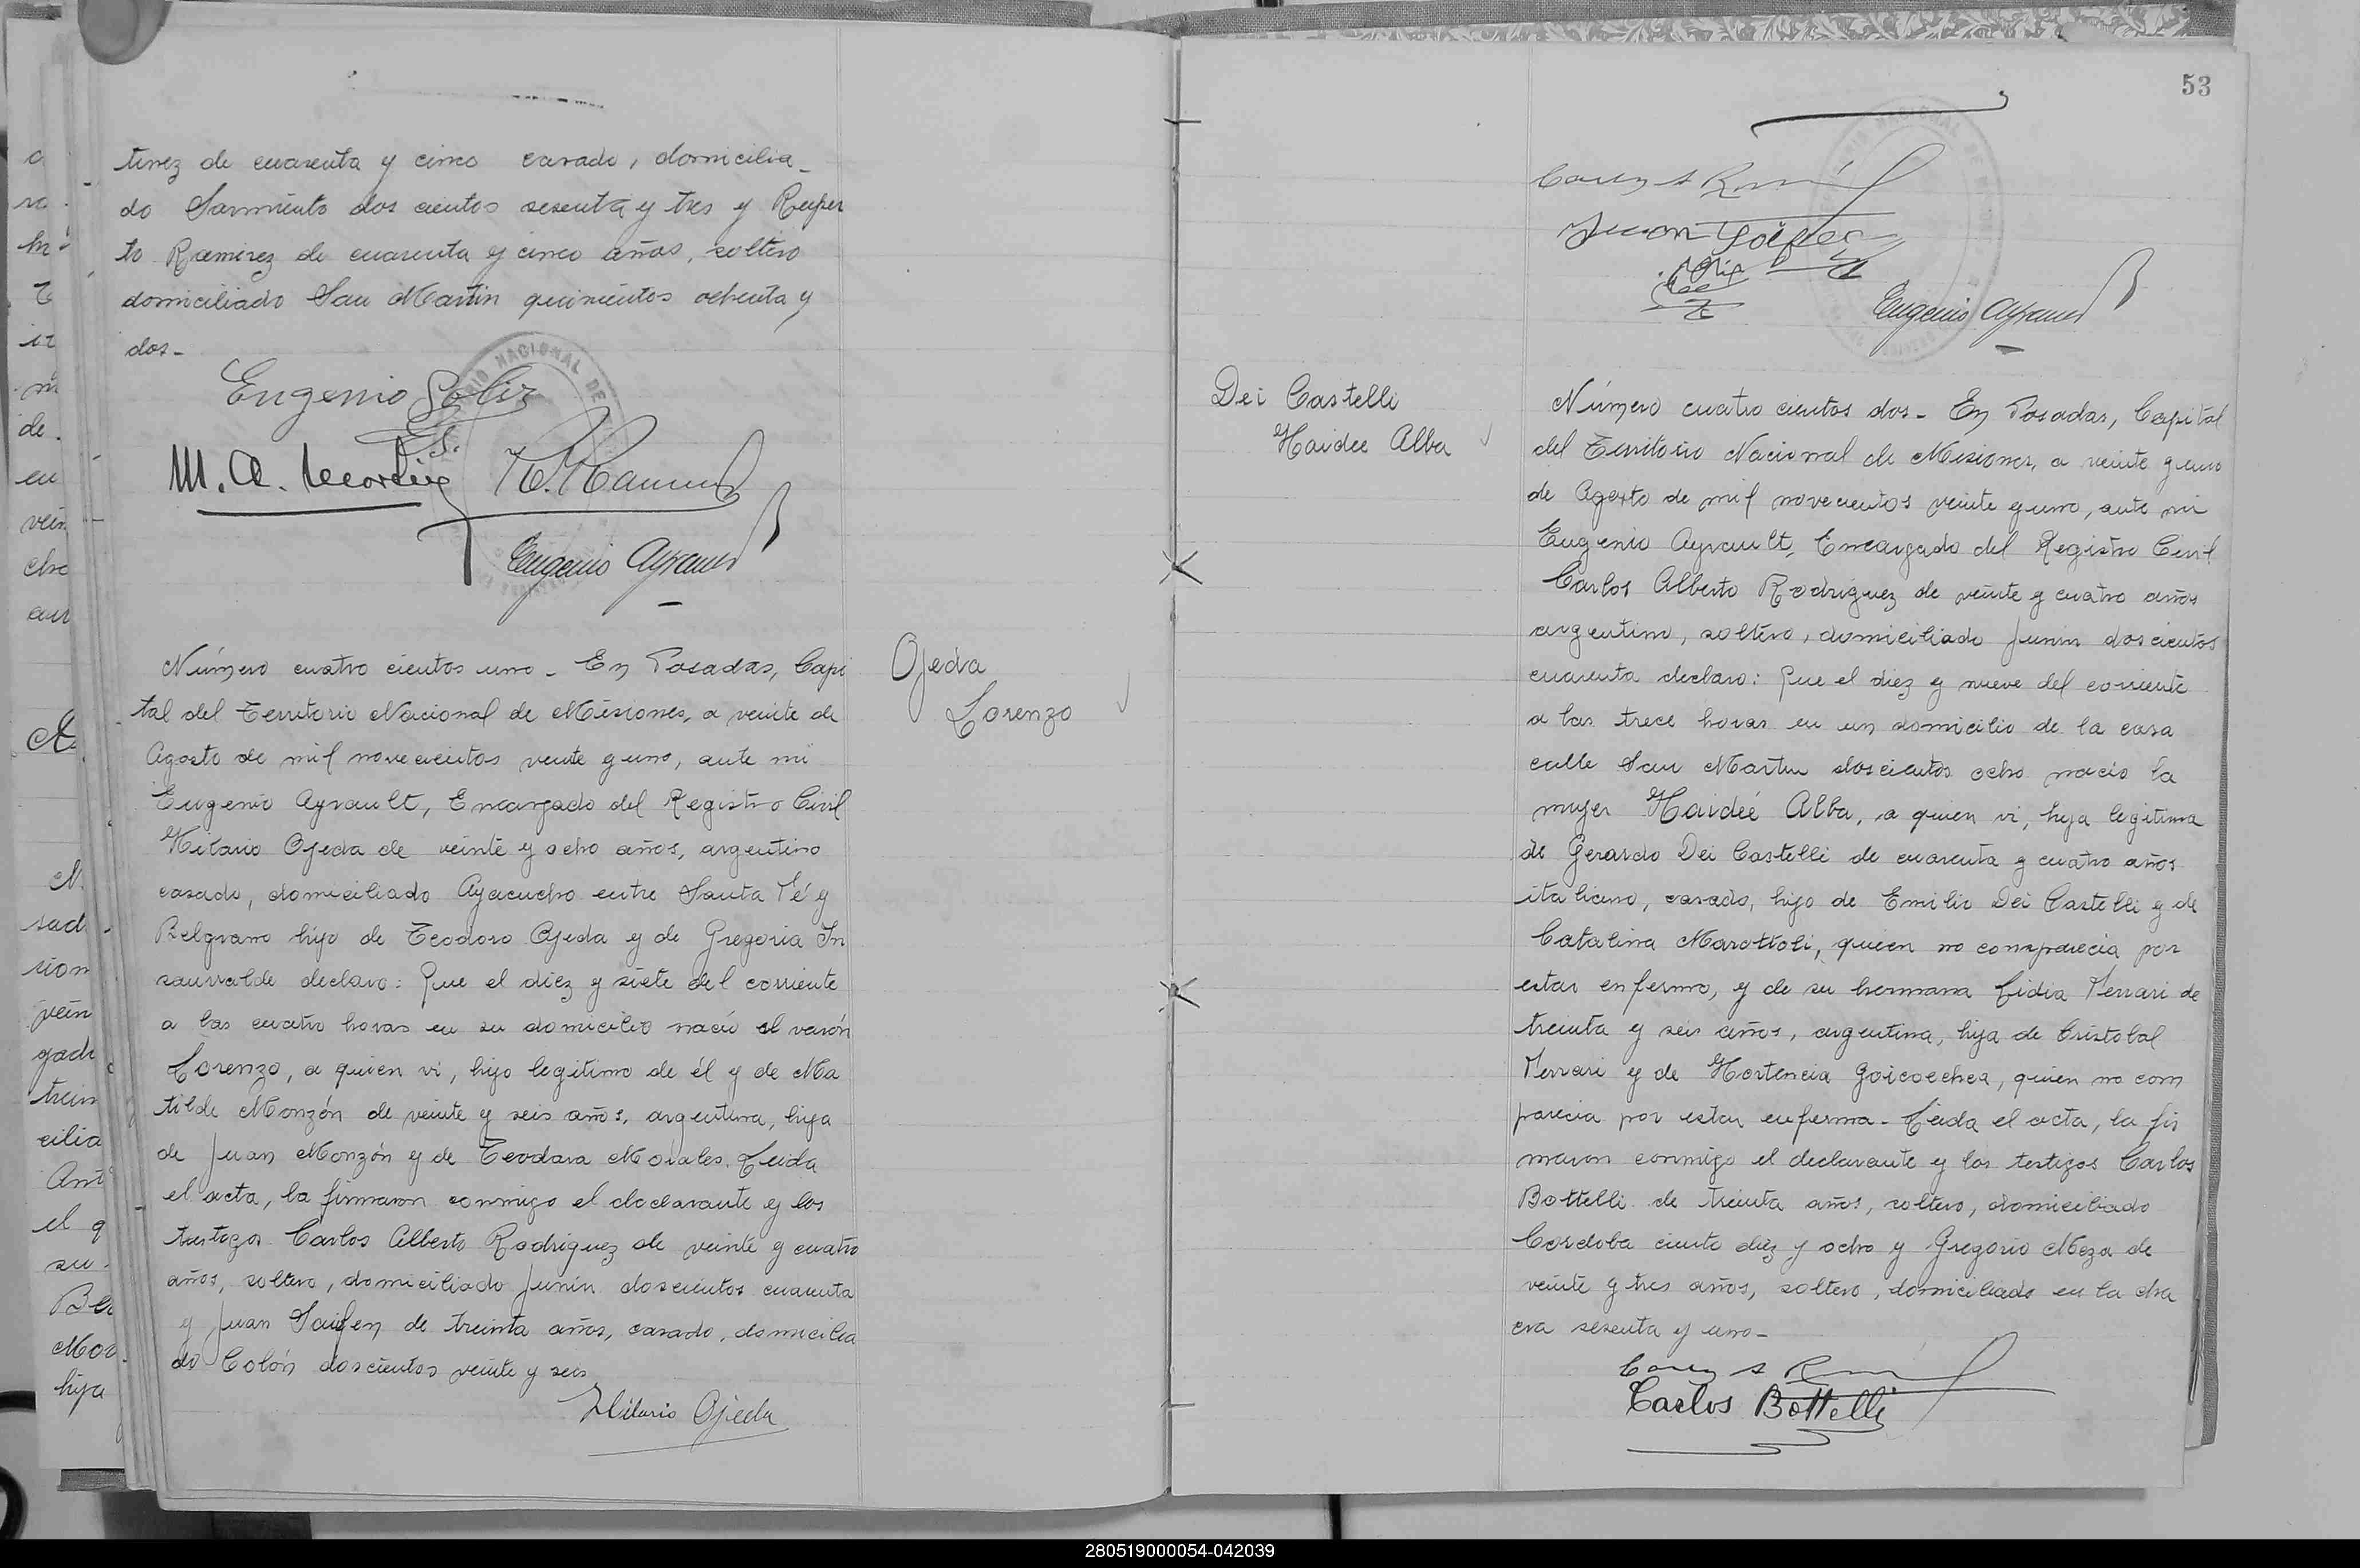 tinez de cuarenta y cinco casado, domicilia-
do Sarmiento dos cientos sesenta y tres y Ruper
to Ramirez de cuarenta y cinco años, soltero
domiciliado San Martin quinientos ochenta y
dos-
Eugenio Solis
M. A.
Eugenio Ayrault
Número cuatro cientos uno - En Posadas, Capi
tal del Territorio Nacional de Misiones, a veinte de
Agosto de mil novecientos veinte y uno, ante mi
Eugenio Ayrault, Encargado del Registro Civil
Hilario Ojeda de veinte y ocho años, argentino
casado, domiciliado Ayacucho entre Santa Fé y
Belgrano hijo de Teodoro Ojeda y de Gregoria In
saurralde declaro: Que el diez y siete del corriente
a las cuatro horas en su domicilio nació el varón
Lorenzo, a quien vi, hijo legitimo de él y de Ma
tilde Monzón de veinte y seis años, argentina, hija
de Juan Monzón y de Teodora Morales. Leida
el acta, la firmaron conmigo el declarante y los
testogos Carlos Alberto Rodriguez de veinte y cuatro
años, soltero, domiciliado Junin doscientos cuarenta
y Juan de treinta años, casado, domicilia
do Colón doscientos veinte y seis
Hilario Ojeda
Ojeda
Lorenzo
53
Juan
Eugenio Ayrault
Dei Castelli
Haidee Alba
Número cuatro cientos dos - En Posadas, Capital
del Territorio Nacional de Misiones, a veinte y uno
de Agosto de mil novecientos veinte y uno, ante mi
Eugenio Ayrault, Encargado del Registro Civil
Carlos Alberto Rodriguez de veinte y cuatro años
argentino, soltero, domiciliado Junin doscientos
cuarenta declaro: Que el diez y nueve del corriente
a las trece horas en un domicilio de la casa
calle San Martin doscientos ocho nació la
mujer Haideé Alba, a quien vi, hija legitima
de Gerardo Dei Castelli de cuarenta y cuatro años
italiano, casado, hijo de Emilio Dei Castelli y de
Catalina Marottoli, quien no comparecia por
estar enfermo, y de su hermana Lidia Ferrari de
treinta y seis años, argentina, hija de Cristobal
Ferrari y de Hortencia Goicoechea, quien no com
parecia por estar enferma - Leida el acta, la fir
maron conmigo el declarante y los testigos Carlos
Bottelli de treinta años, soltero, domiciliado
Cordoba ciento diez y ocho y Gregorio Meza de
veinte y tres años, soltero, domiciliado en la cha
cra sesenta y uno-
Carlos Bottelli
280519000054-042039